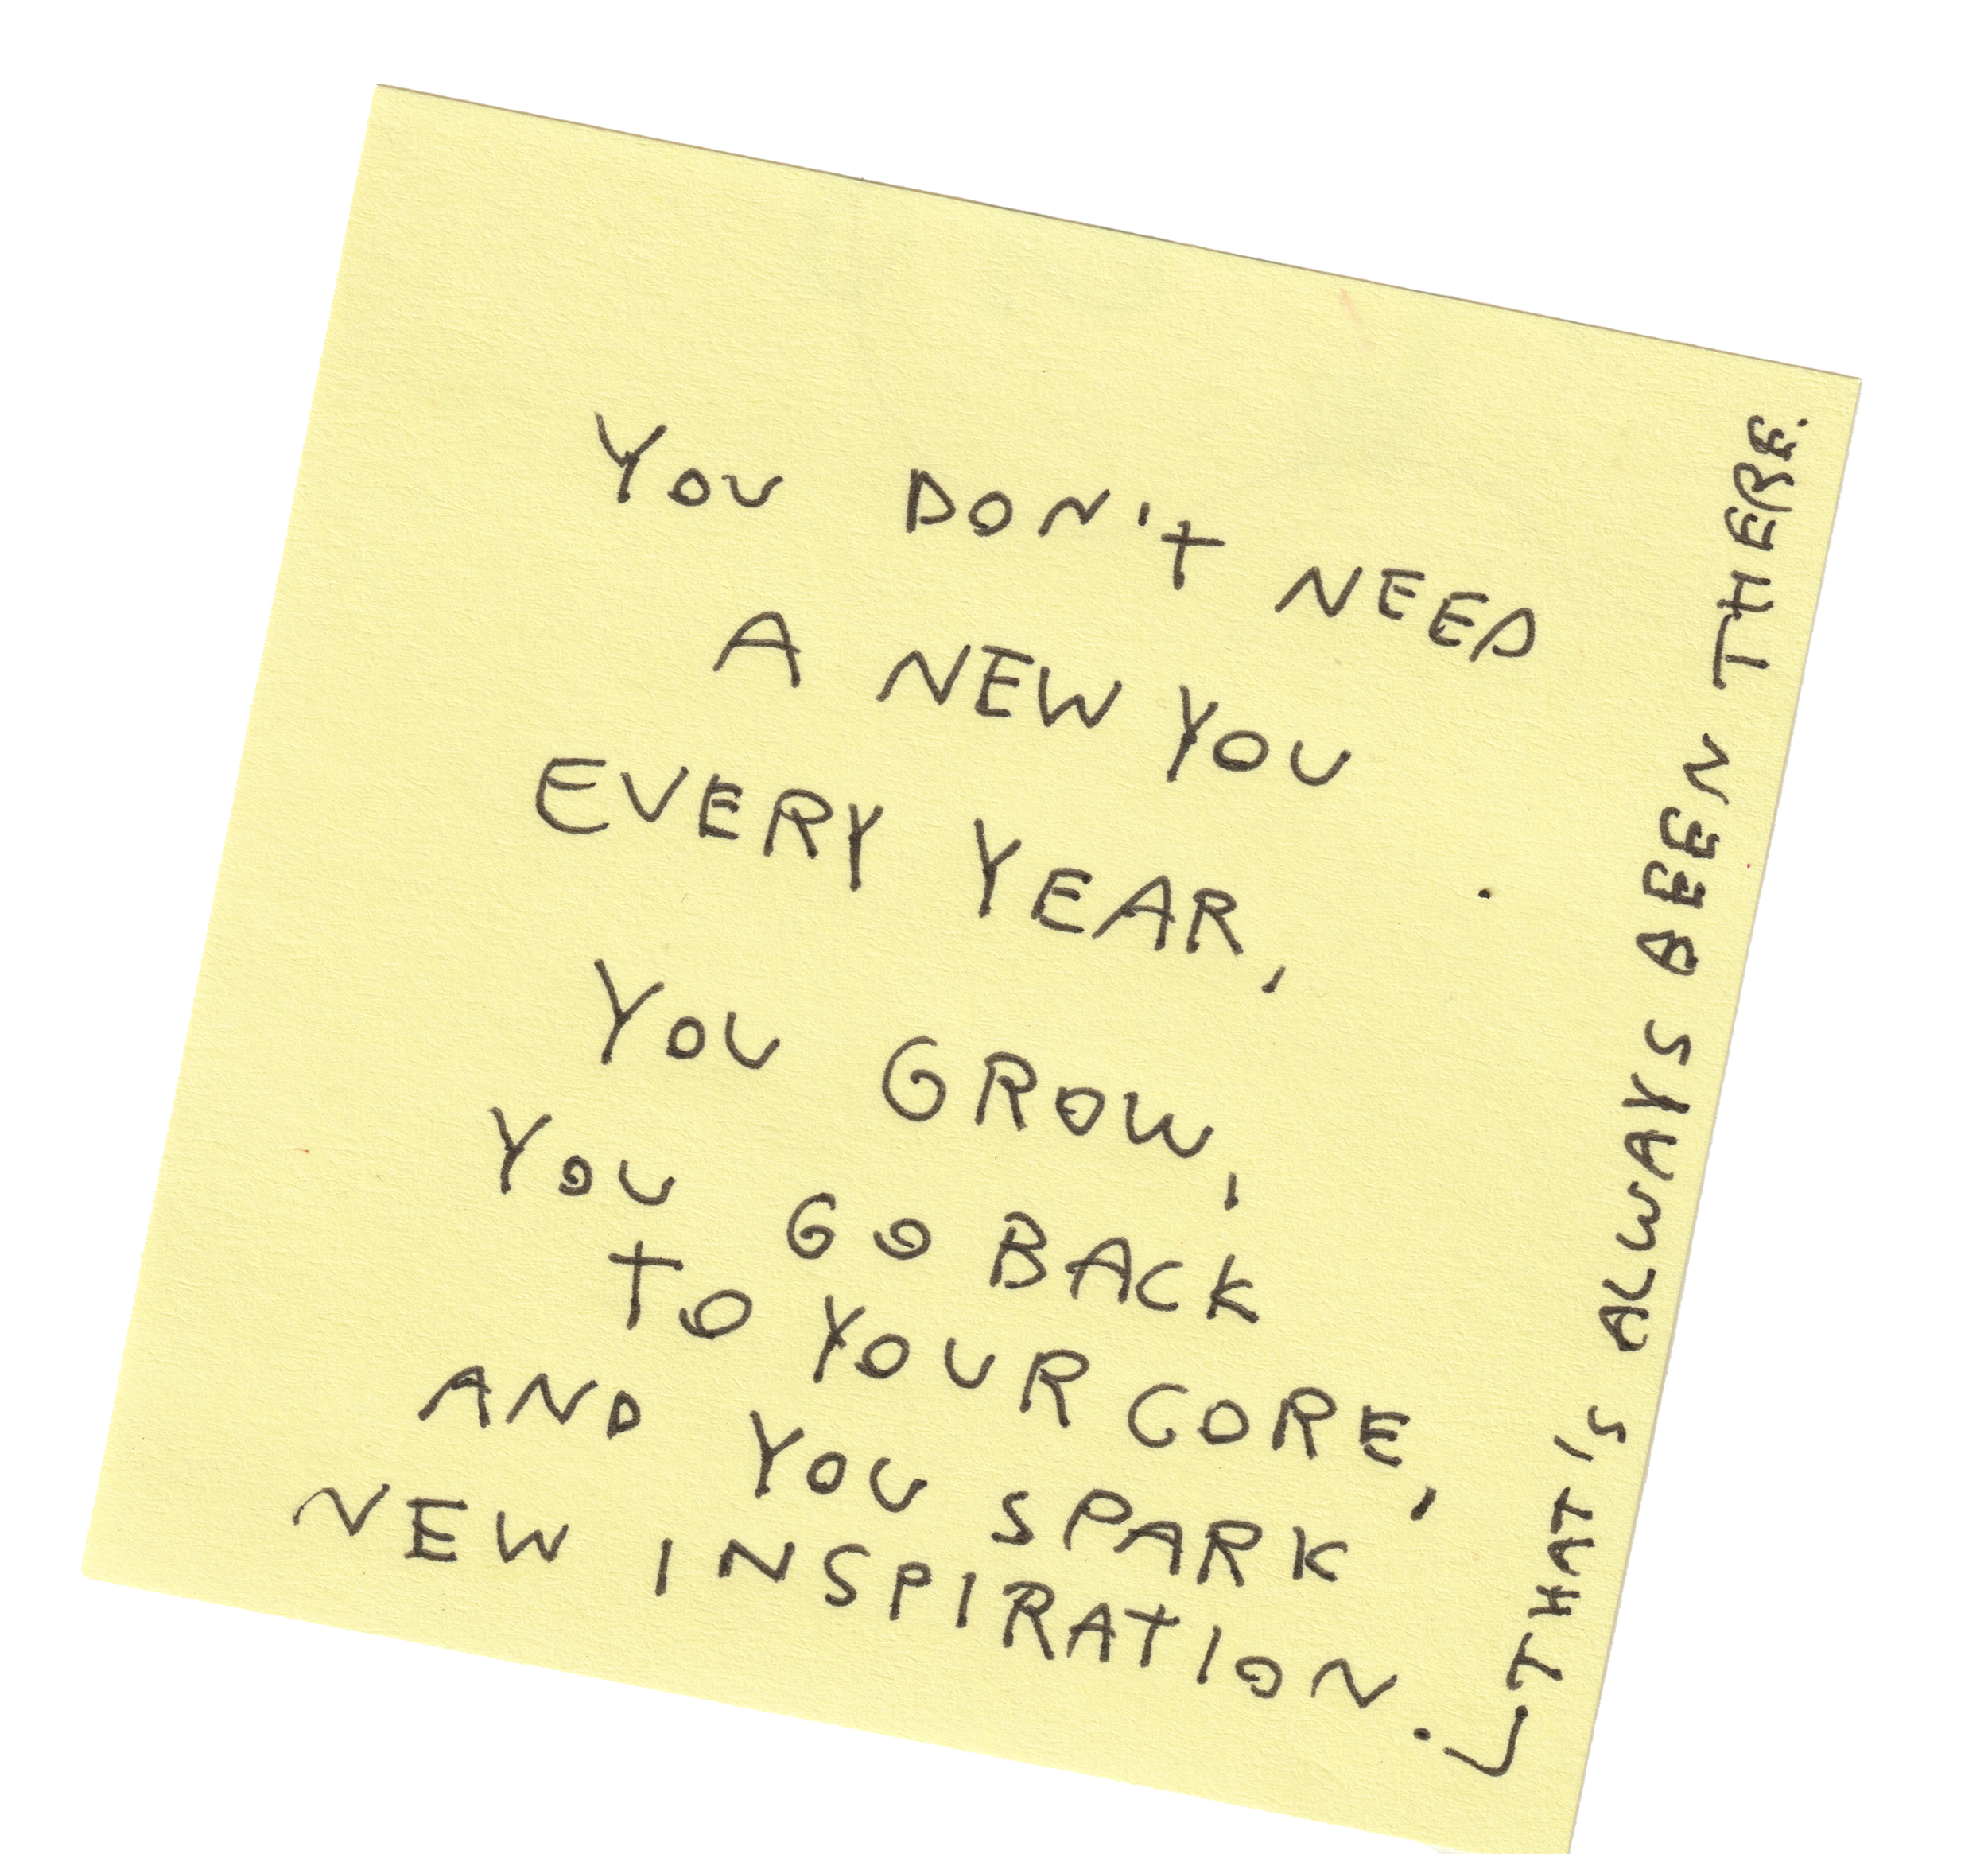 YOU DON'T NEED
A NEW YOU
EVERY YEAR,
YOU GROW,
YOU GO BACK
TO YOUR CORE,
AND YOU SPARK
NEW INSPIRATION.
THAT'S ALWAYS BEEN THERE.